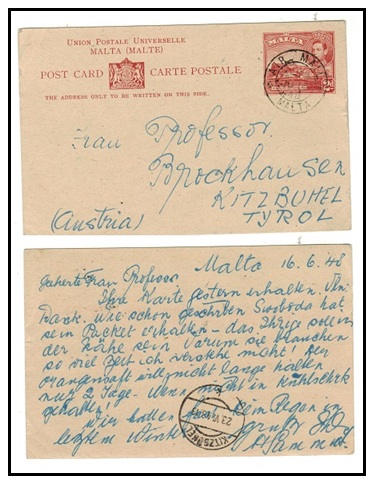 UNION POSTALE UNIVERSELLE
MALTA (MALTE)
POST CARD CARTE POSTALE
THE ADDRESS ONLY TO BE WRITTEN ON THIS SIDE.
MALTA
AIR MA
MALTA
Frau Professor
Brockhausen
KITZBÜHEL
(Austria) TYROL
Malta 16.6.48
Geehrte Frau Professor
Ihre Karte gestern erhalten. Vielen
Dank. Wie schon geschrieben Svoboda hat
sein Packet erhalten - das Ihrige soll in
der Nähe sein warum sie brauchen
so viel Zeit ich verstehe nicht! Der
orangensaft will nicht lange halten
nur 2 Tage. Wenn nicht im kühlschrk
gehalten!
Wir hatten kein Regen im
letztem Winter
KITZBÜHEL
23.VI.48